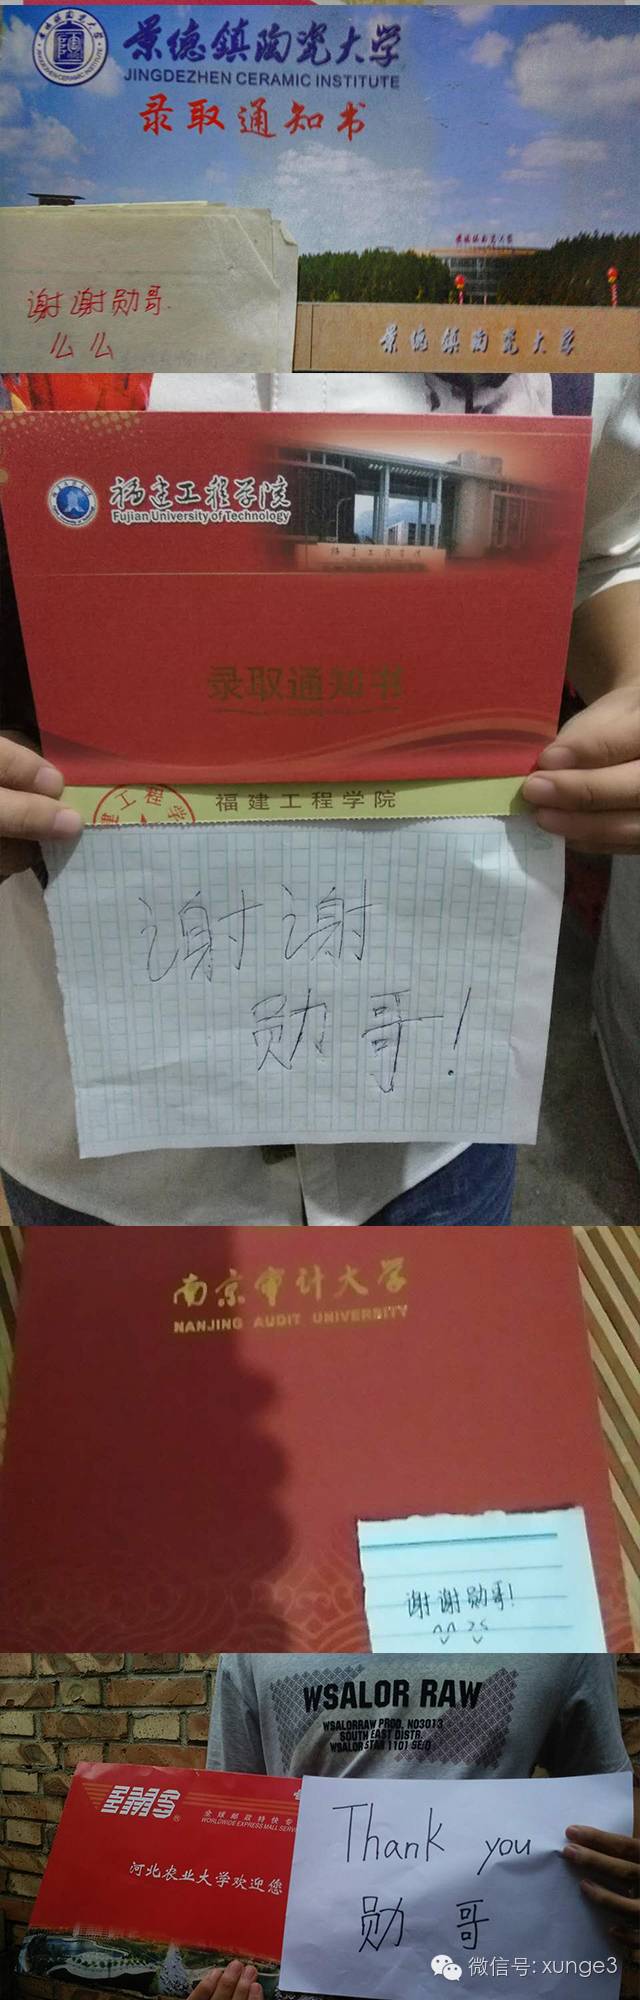 景德鎮陶瓷大学
JINGDEZHEN CERAMIC INSTITUTE
录取通知书
景德鎮陶瓷大学
谢谢勋哥.
么么
景德鎮陶瓷大学
福建工程学院
Fujian University of Technology
福建工程学院
录取通知书
福建工程学院
谢谢
勋哥!
南京审计大学
NANJING AUDIT UNIVERSITY
谢谢勋哥!
WSALOR RAW
WSALORRAW PROD. NO3013
SOUTH EAST DISTR.
WSALOR STAR 1101 SE/D
EMS
全球邮政特快专
WORLDWIDE EXPRESS MAIL SERVI
河北农业大学欢迎您
Thank you
勋哥
微信号: xunge3